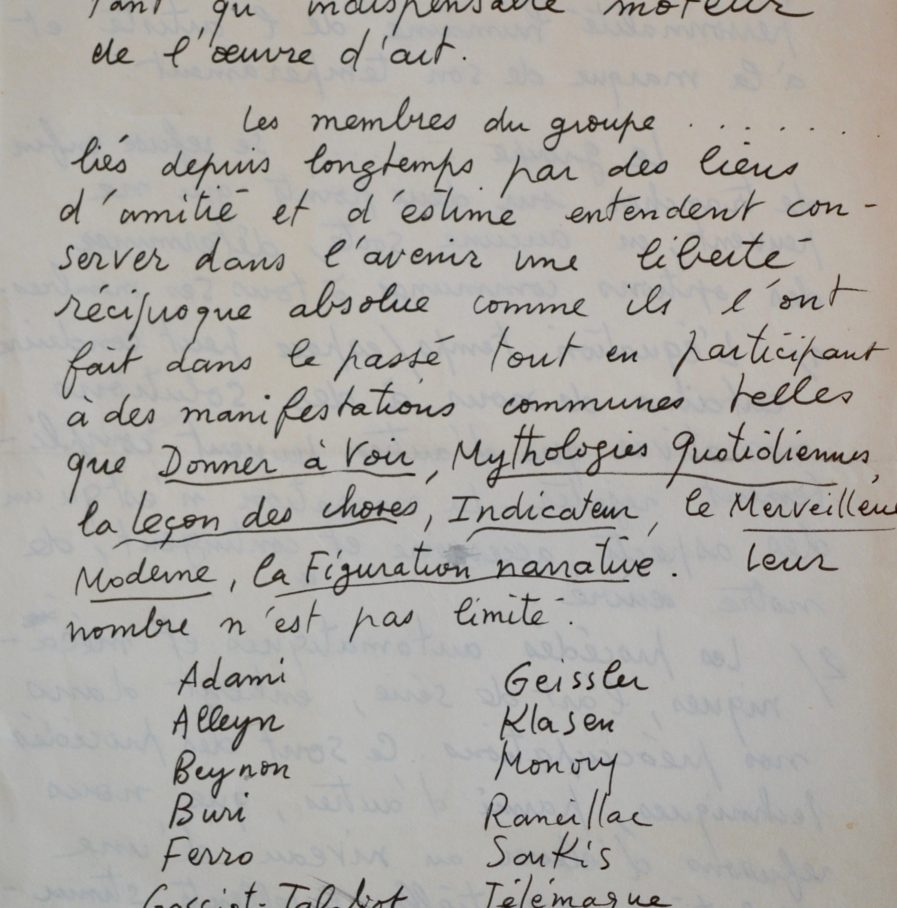 tant qu'indispensable moteur
de l'œuvre d'art.
Les membres du groupe . . . . . . .
liés depuis longtemps par des liens
d'amitié et d'estime entendent con-
server dans l'avenir une liberté
réciproque absolue comme ils l'ont
fait dans le passé tout en participant
à des manifestations communes telles
que Donner à Voir, Mythologies Quotidiennes,
la leçon des choses, Indicateur, le Merveilleux
Moderne, la Figuration narrative. Leur
nombre n'est pas limité.
Adami Geissler
Alleyn Klasen
Beynon Monory
Buri Rancillac
Ferro Saukis
Gassiot-Talabot Télémaque